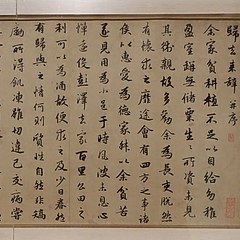 歸去來辭并序
余家貧耕植不足以自給幼稚
盈室缾無儲粟生生所資未見
其術親故多勸余為長吏脫然
有懷求之靡途會有四方之事諸
侯以惠愛為德家叔以余貧苦
遂見用為小邑于時風波未息心
憚遠役彭澤去家百里公田之
利可以為酒故便求之及少日眷然
有歸與之情何則質性自然非矯
勵所得飢凍雖切違己交病嘗